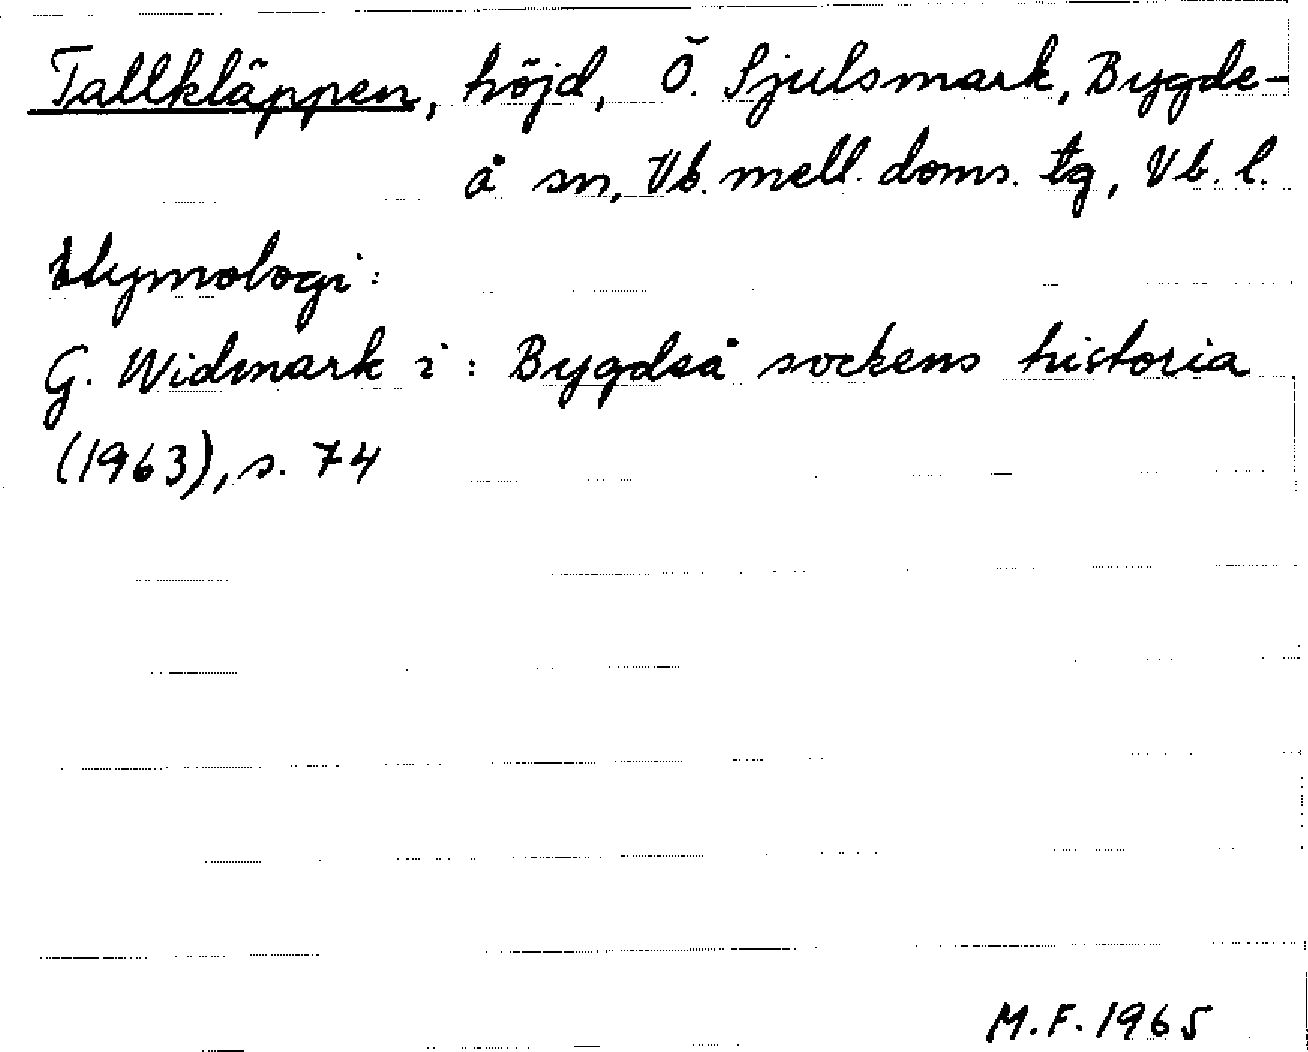 Tallkläppen, höjd, Ö. Sjulsmark, Bygde-
å sn, Vb. mell. doms. tg, Vb. l.
Etymologi:
G. Widmark i: Bygdeå sockens historia
(1963), s. 74
M.F. 1965